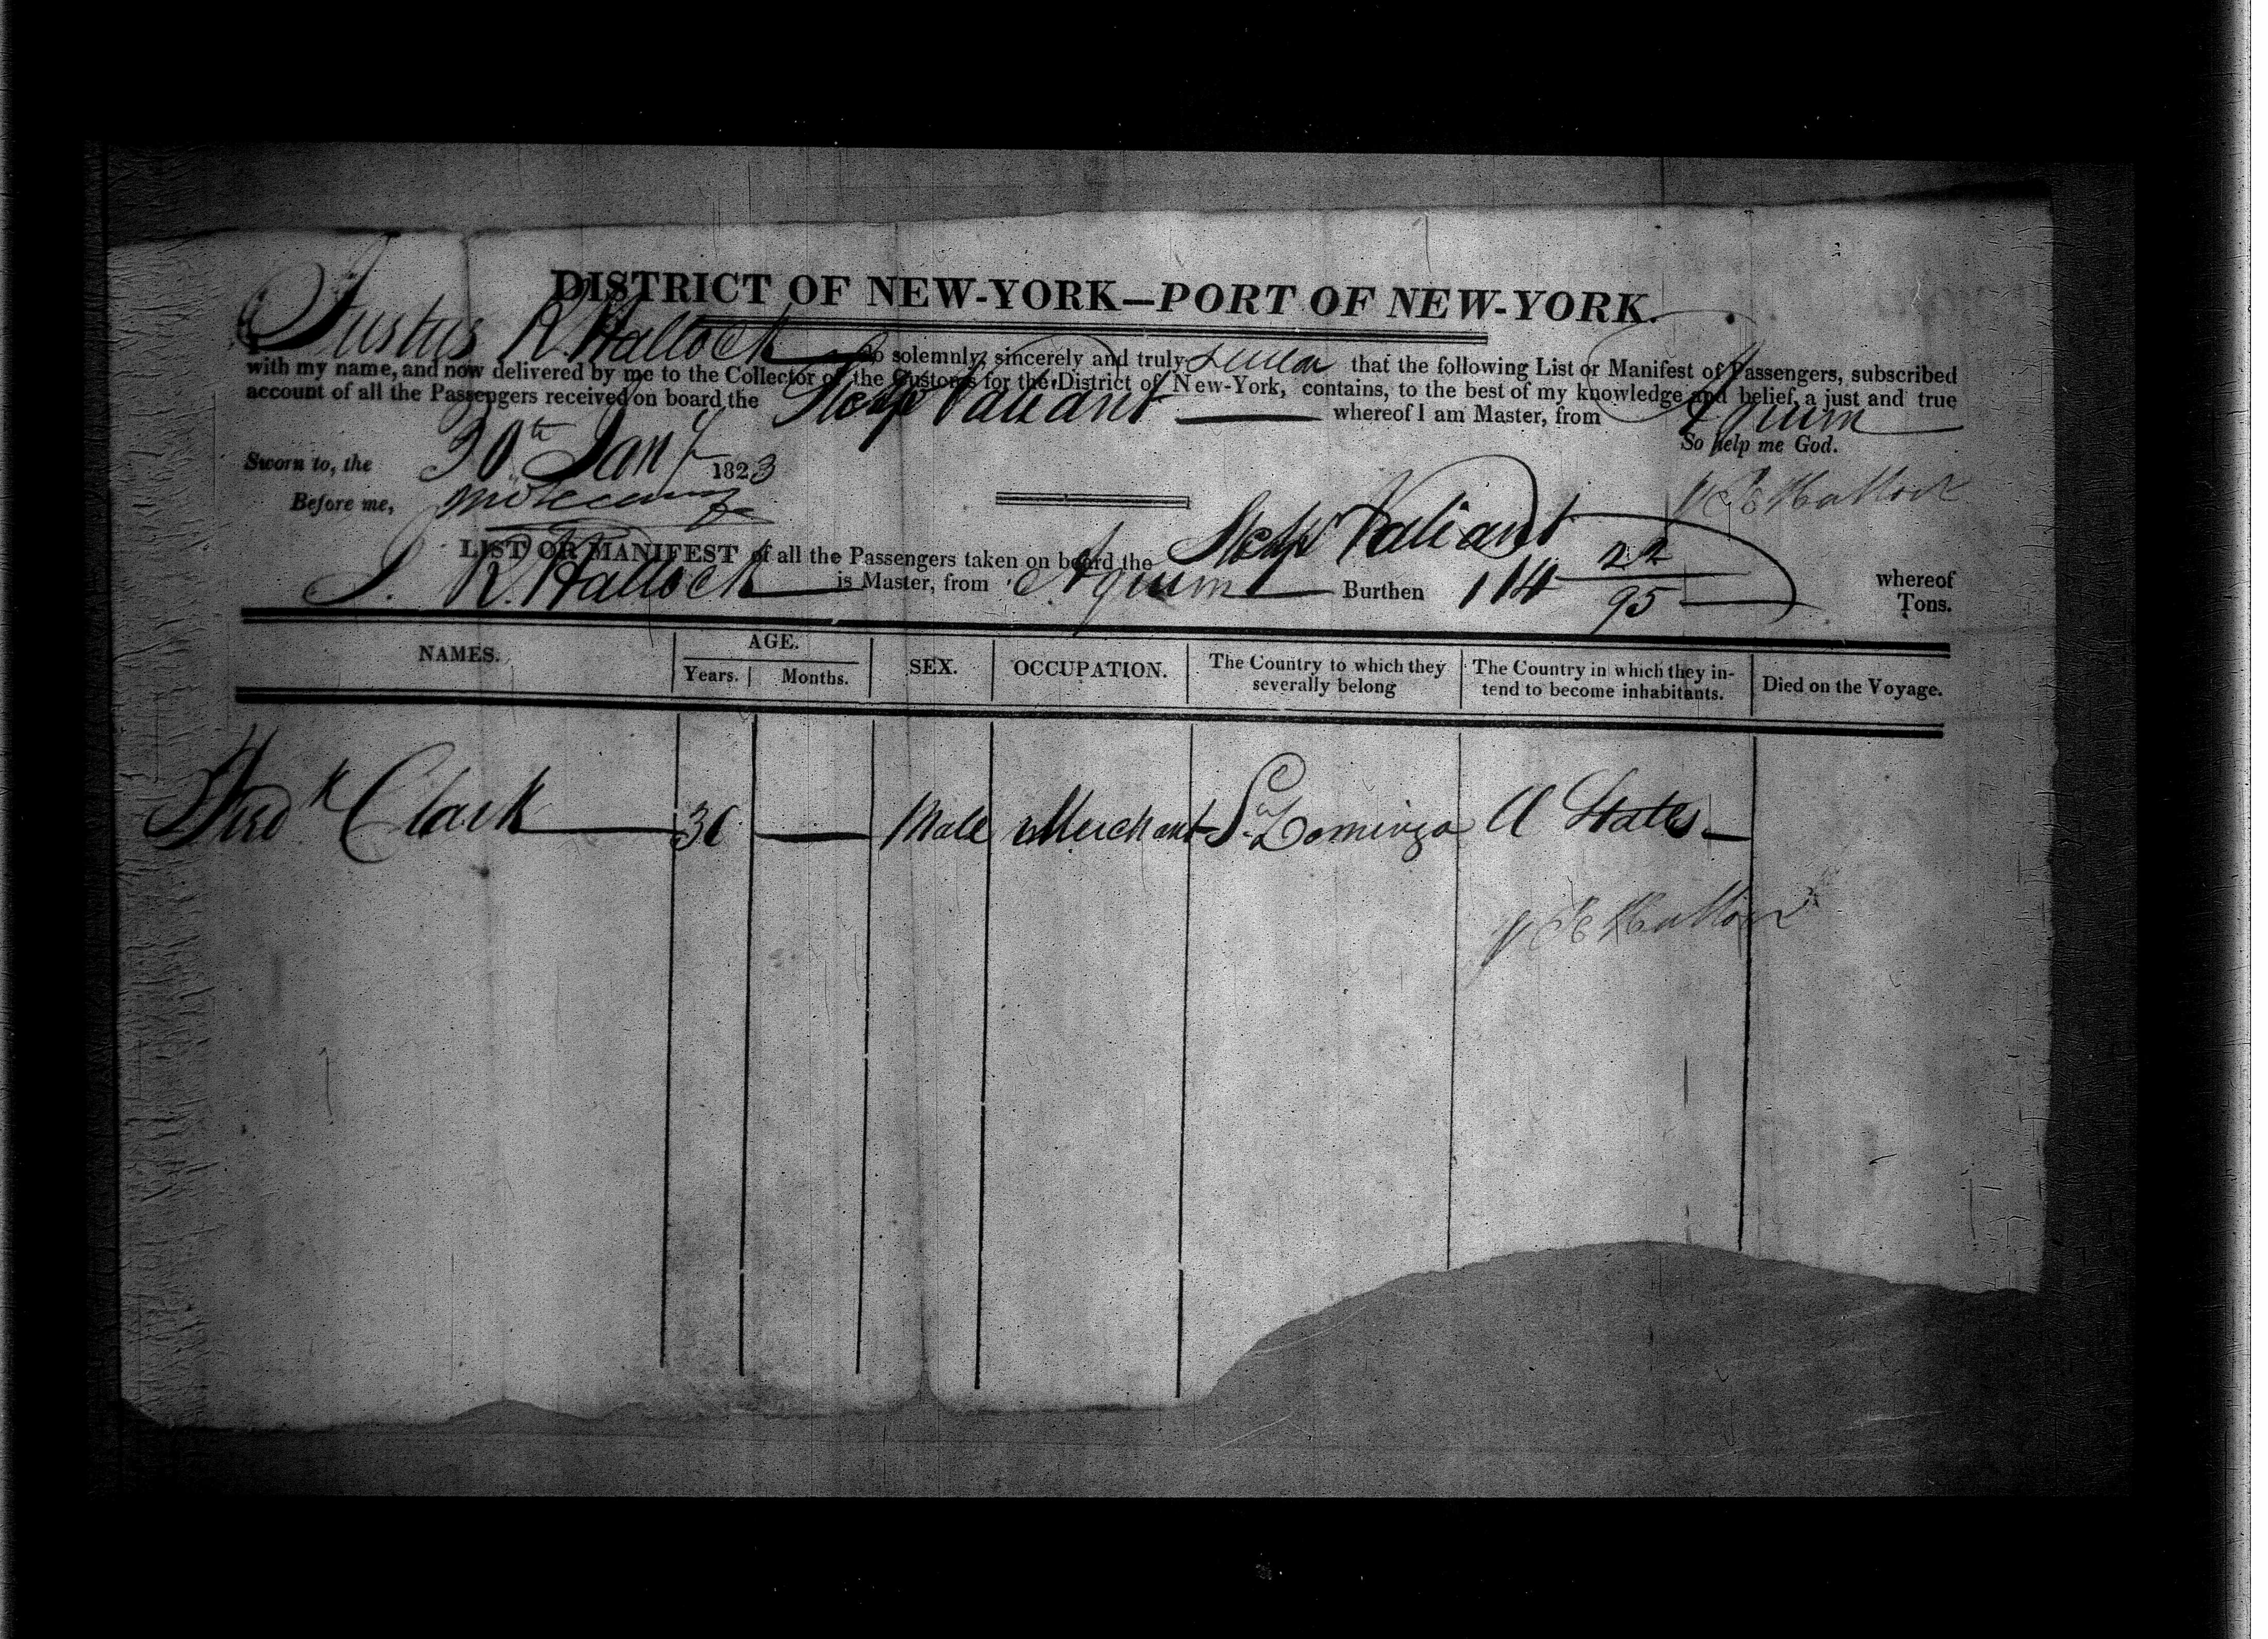 DISTRICT OF NEW-YORK—PORT OF NEW-YORK.
I Justus R. Hallock do solemnly, sincerely and truly swear that the following List or Manifest of Passengers, subscribed
with my name, and now delivered by me to the Collector of the Customs for the District of New-York, contains, to the best of my knowledge and belief, a just and true
account of all the Passengers received on board the Schr Valiant whereof I am Master, from Aquim
So help me God.
Sworn to, the 30th Jany 1823
Before me,
J R Hallock
LIST OR MANIFEST of all the Passengers taken on board the Schr Valiant whereof
J. R. Hallock is Master, from Aquim Burthen 114 22/95 Tons.
NAMES. AGE. Years. Months. SEX. OCCUPATION. The Country to which they severally belong The Country in which they intend to become inhabitants. Died on the Voyage.
Fredk Clark 36 — Male Merchant St Domingo U States
J R Hallock